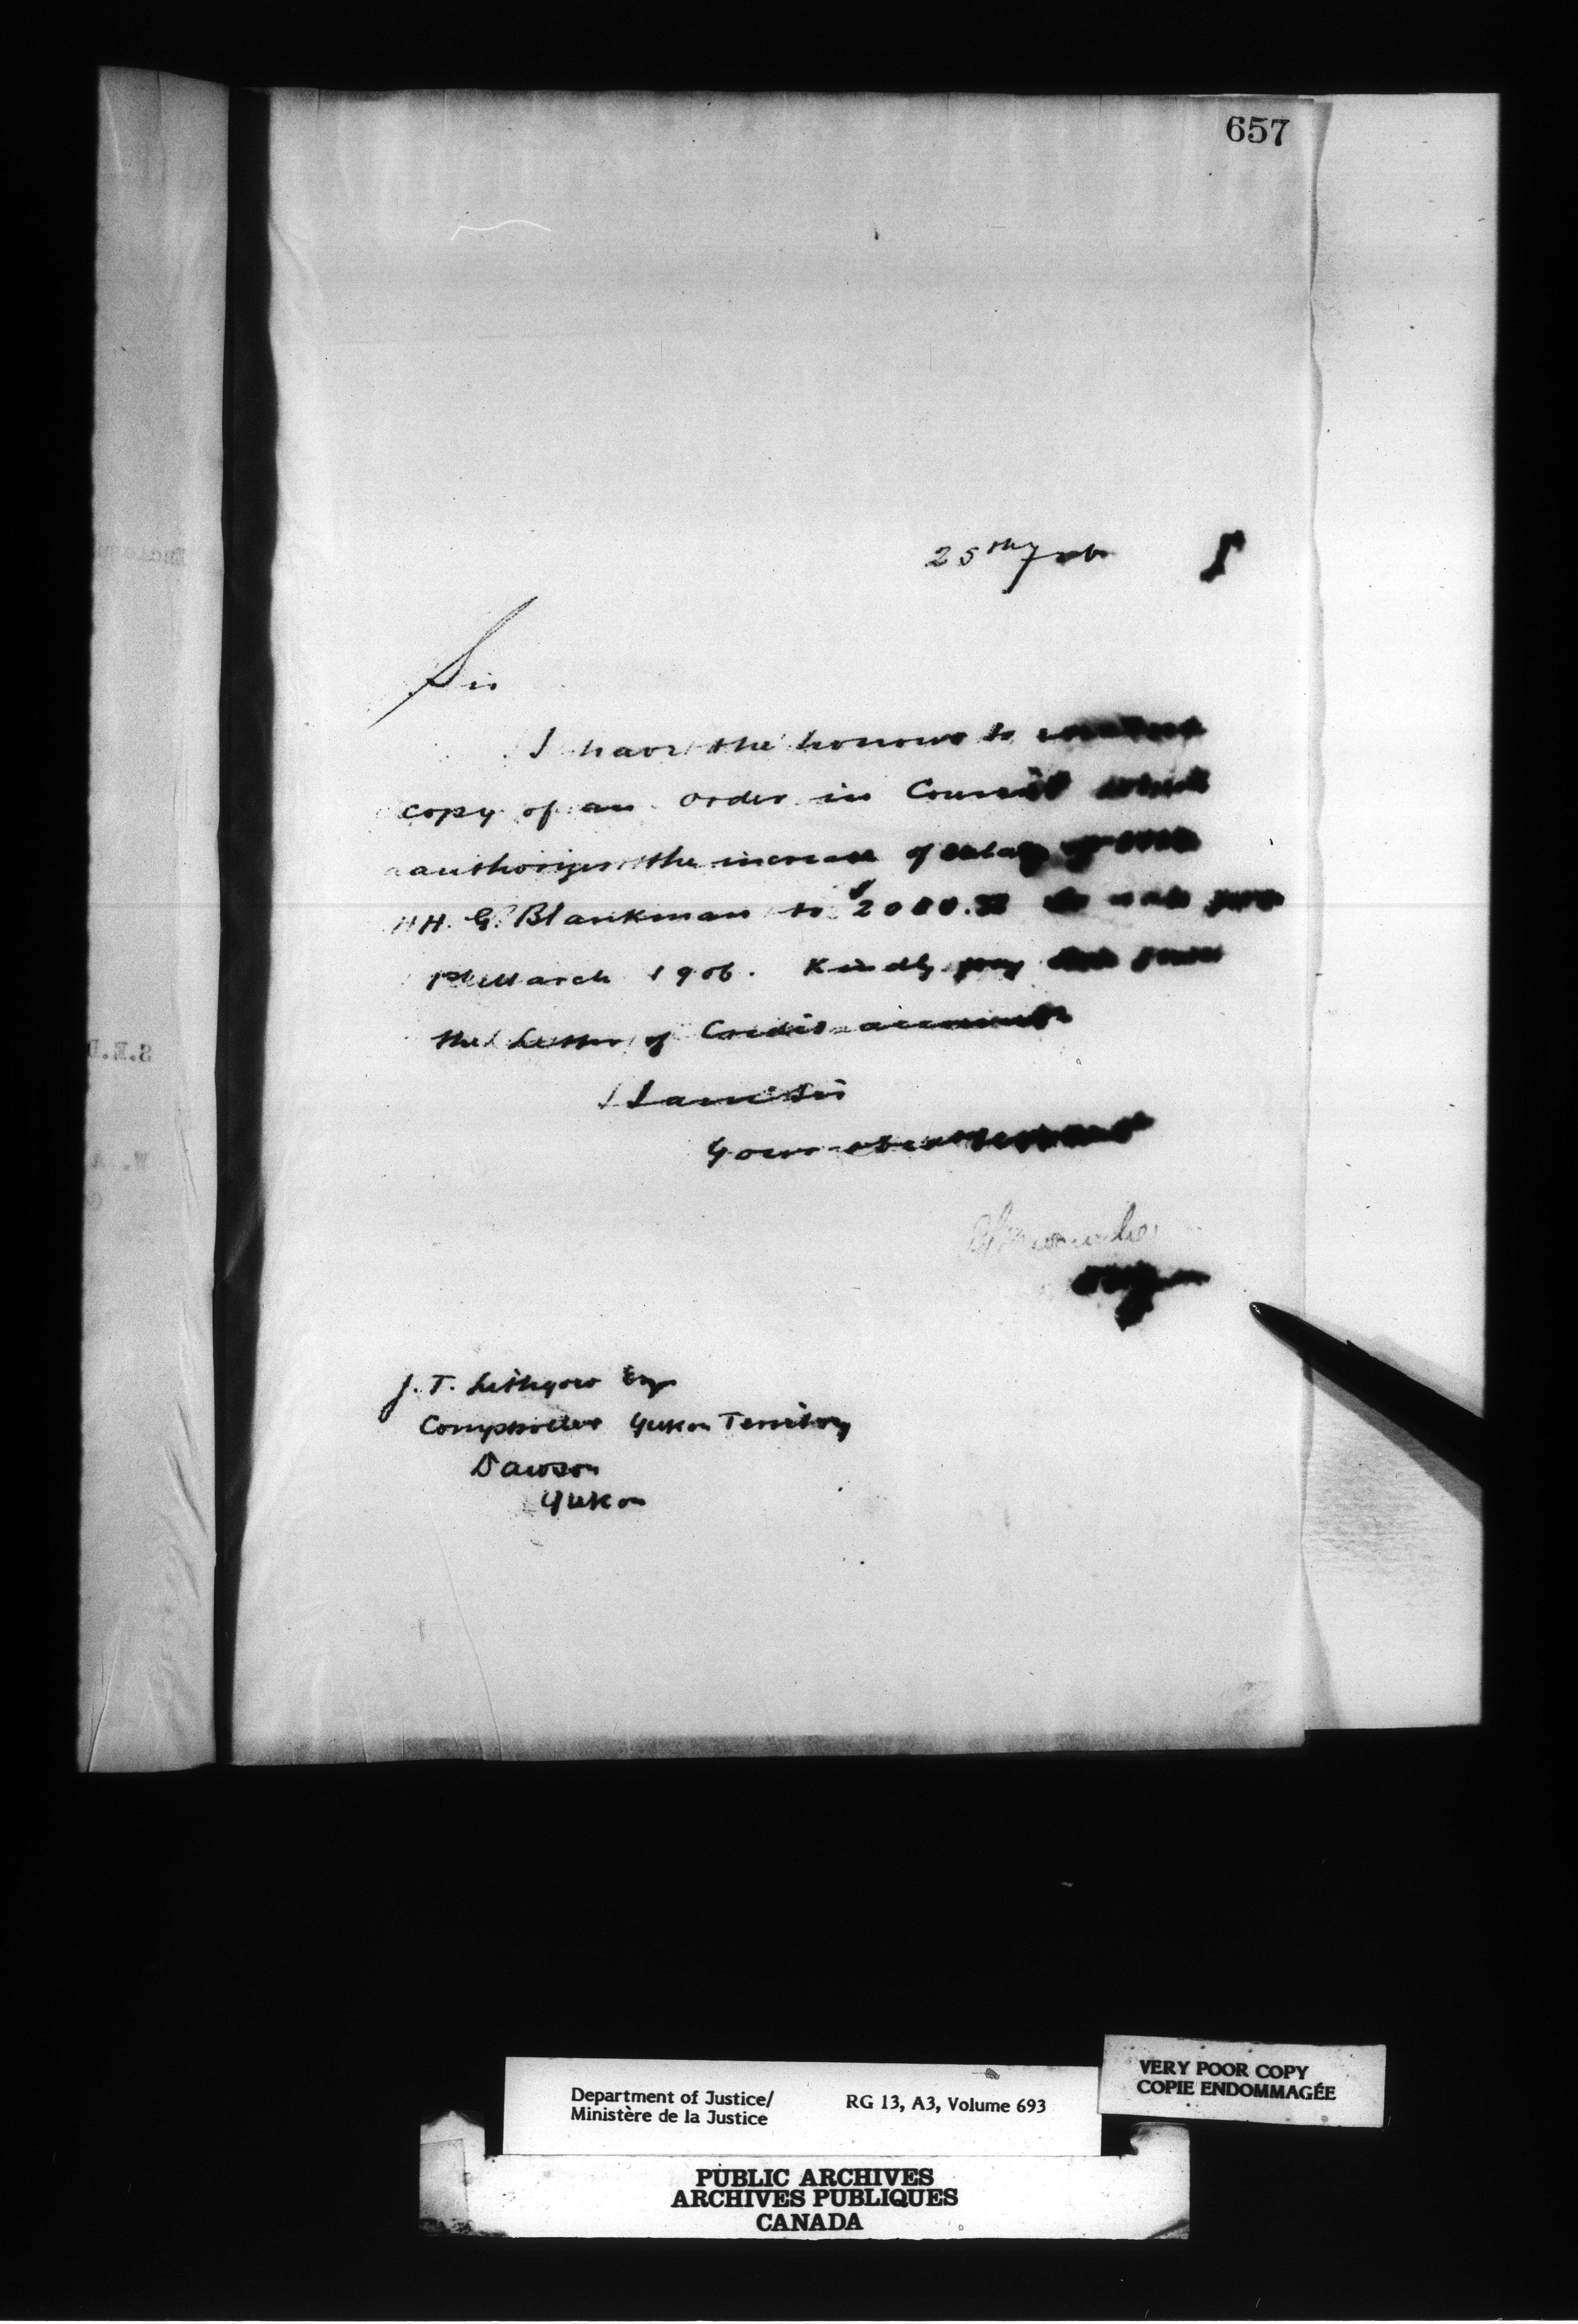 657
25th Feb
Sir
I have the honour to
copy of an Order in Council which
authorizes the increase of salary of
H. G. Blankman to $2000.
1st March 1906. Kindly pay this from
the Letter of Credit account
I am Sir
Your obedient servant
J. T. Lithgow Esq
Comptroller Yukon Territory
Dawson
Yukon
Department of Justice/
Ministère de la Justice
RG 13, A3, Volume 693
VERY POOR COPY
COPIE ENDOMMAGÉE
PUBLIC ARCHIVES
ARCHIVES PUBLIQUES
CANADA